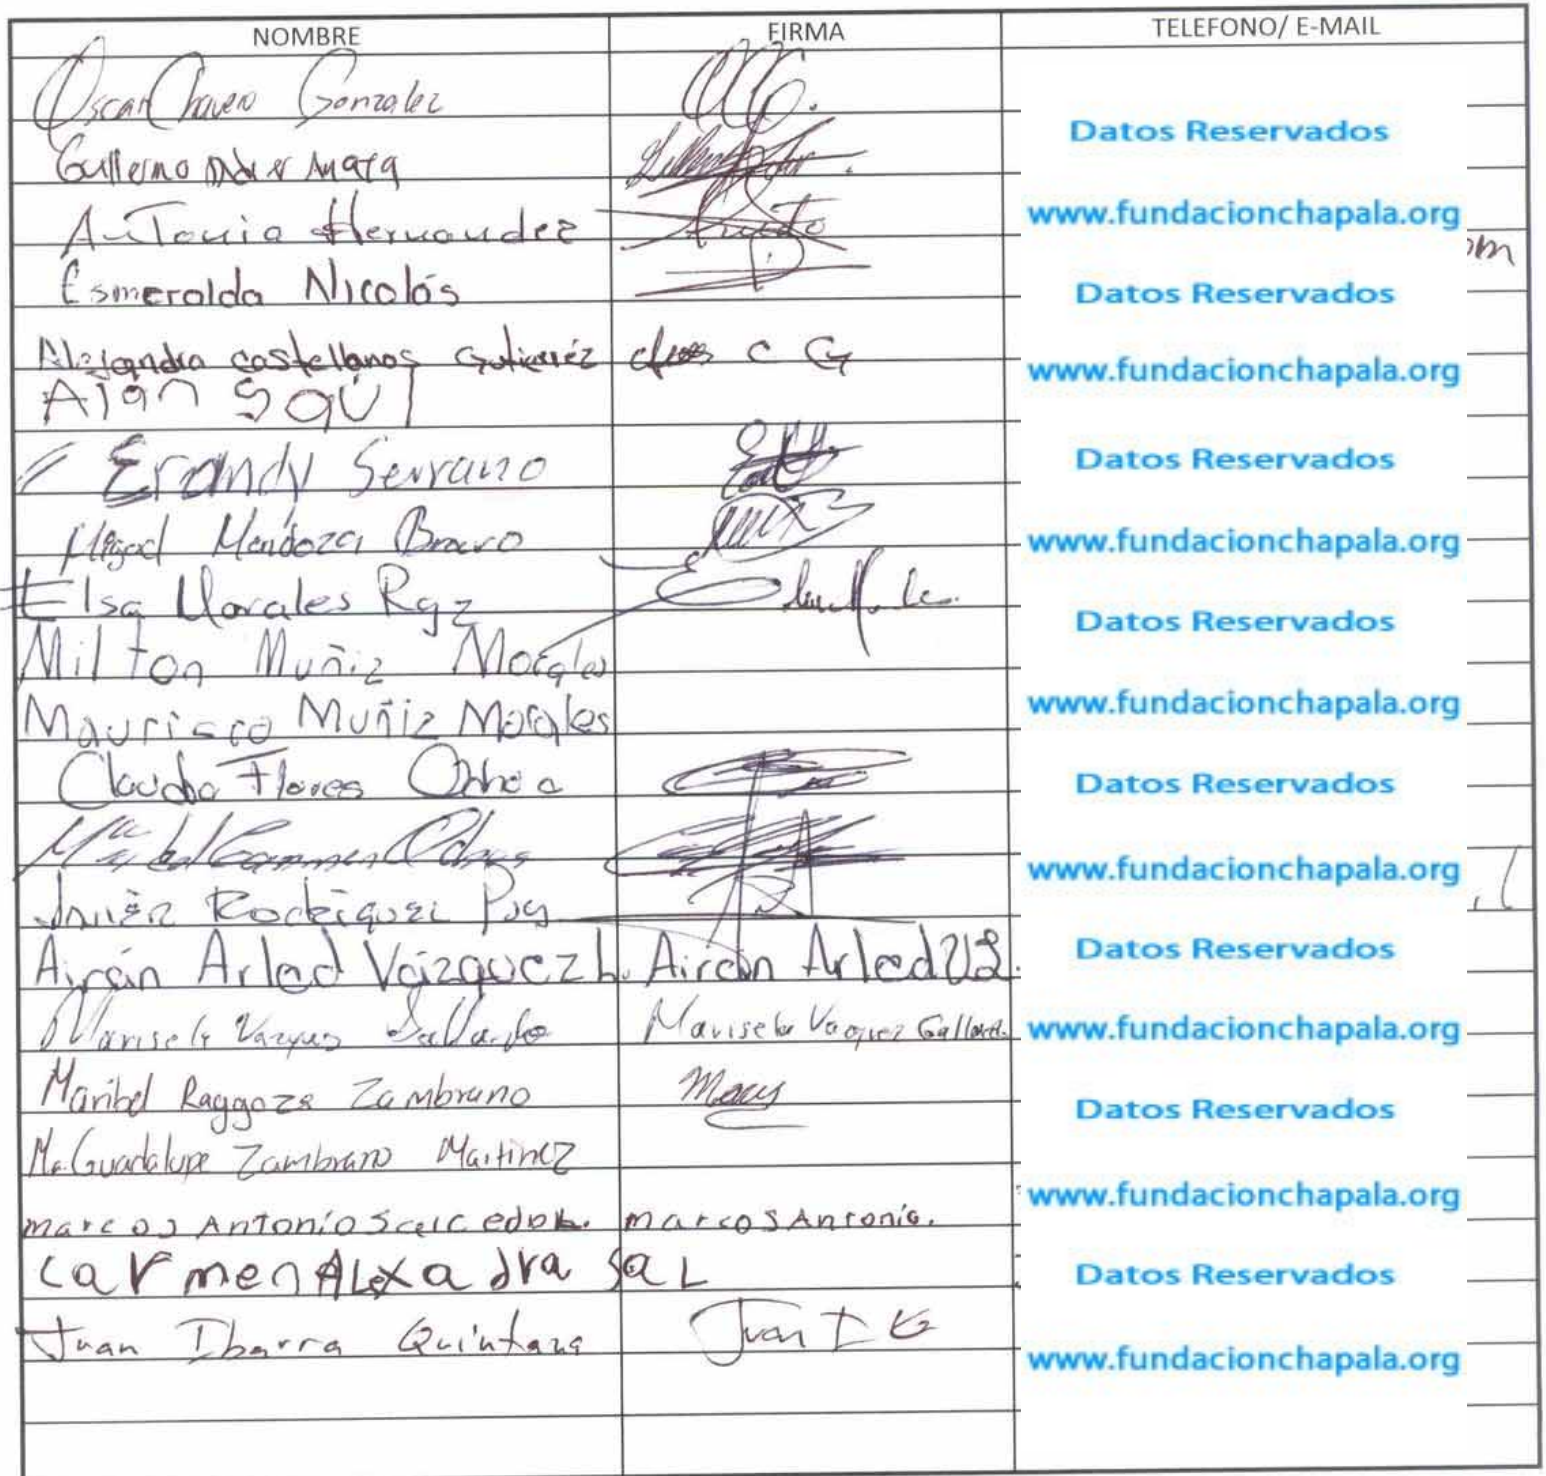 NOMBRE FIRMA TELEFONO/ E-MAIL
Oscar Chavero Gonzalez
Datos Reservados
Guillermo Mata
Antonia Hernandez www.fundacionchapala.org
om
Esmeralda Nicolás Datos Reservados
Alejandra castellanos Gutierréz C G www.fundacionchapala.org
Alan Saúl
Erandy Serrano Datos Reservados
Miguel Mendoza Bravo www.fundacionchapala.org
Elsa Morales Rgz Datos Reservados
Milton Muñiz Morales
Maurisco Muñiz Morales www.fundacionchapala.org
Claudia Flores Ochoa Datos Reservados
Ma del Carmen www.fundacionchapala.org
Javier Rodriguez
Airán Arled Vázquez L. Airán Arled V.L. Datos Reservados
Marisela Vazquez Gallardo Marisela Vazquez Gallardo www.fundacionchapala.org
Maribel Raggoza Zambrano Mary Datos Reservados
Ma. Guadalupe Zambrano Martinez
marcos Antonio Salcedo marcos Antonio. www.fundacionchapala.org
Carmen Alexadra Sal Datos Reservados
Juan Ibarra Quintana Juan I www.fundacionchapala.org